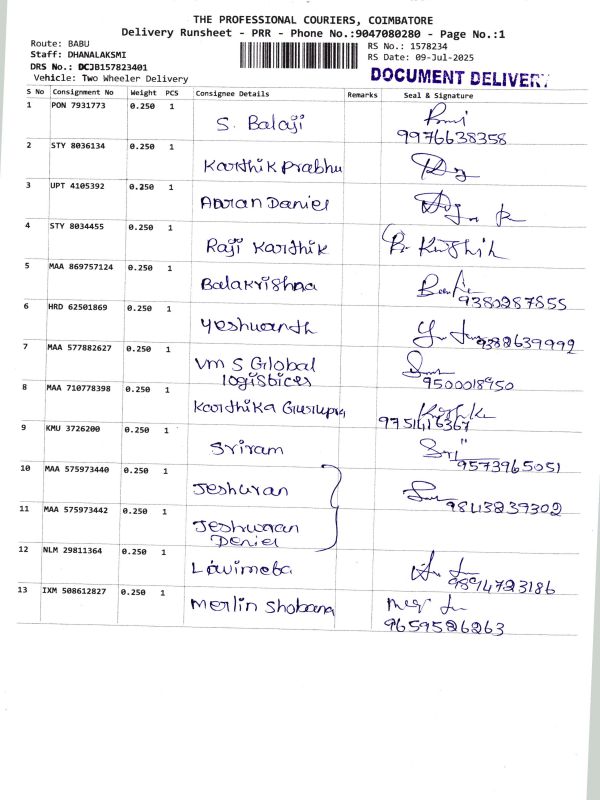 THE PROFESSIONAL COURIERS, COIMBATORE
Delivery Runsheet - PRR - Phone No.:9047080280 - Page No.:1
Route: BABU
Staff: DHANALAKSMI
DRS No.: DCJB157823401
Vehicle: Two Wheeler Delivery
RS No.: 1578234
RS Date: 09-Jul-2025
DOCUMENT DELIVERY
S No Consignment No Weight PCS Consignee Details Remarks Seal & Signature
1 PON 7931773 0.250 1 S. Balaji
9976638358
2 STY 8036134 0.250 1 Karthik prabhu
3 UPT 4105392 0.250 1 Aaran Daniel
4 STY 8034455 0.250 1 Raji Karthik
5 MAA 869757124 0.250 1 Balakrishna
9380287855
6 HRD 62501869 0.250 1 Yeshwanth
9382639992
7 MAA 577882627 0.250 1 VM S Global
logistices
9500018950
8 MAA 710778398 0.250 1 Karthika
9751416367
9 KMU 3726200 0.250 1 Sriram
9573965051
10 MAA 575973440 0.250 1 Jeshuran
9843839302
11 MAA 575973442 0.250 1 Jeshuraan
Deniel
12 NLM 29811364 0.250 1
9894723186
13 IXM 508612827 0.250 1 Merlin Shobana
9659526263